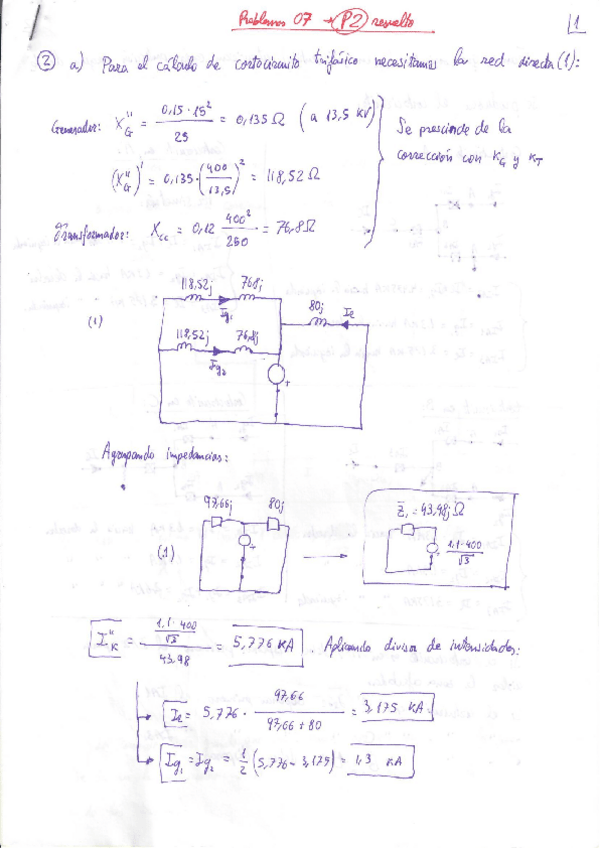 Problemas 07 → P2 resuelto
1
② a) Para el cálculo de cortocircuito trifásico necesitamos la red directa (1):
Generador: X''G = 0,15·15² / 25 = 0,135 Ω (a 13,5 kV)
(X''G)' = 0,135·(400/13,5)² = 118,52 Ω
Transformador: Xcc = 0,12 400²/250 = 76,8 Ω
Se prescinde de la
corrección con KG y KT
118,52j 76,8j
Ig1
80j Ie
(1)
118,52j 76,8j
Ig2
+
Agrupando impedancias:
97,66j 80j
(1) +
Z1 = 43,98j Ω
+ 1,1·400/√3
I''K = (1,1·400/√3) / 43,98 = 5,776 KA. Aplicando divisor de intensidades:
Ie = 5,776 · 97,66 / (97,66 + 80) = 3,175 KA
Ig1 = Ig2 = 1/2 (5,776 - 3,175) = 1,3 KA